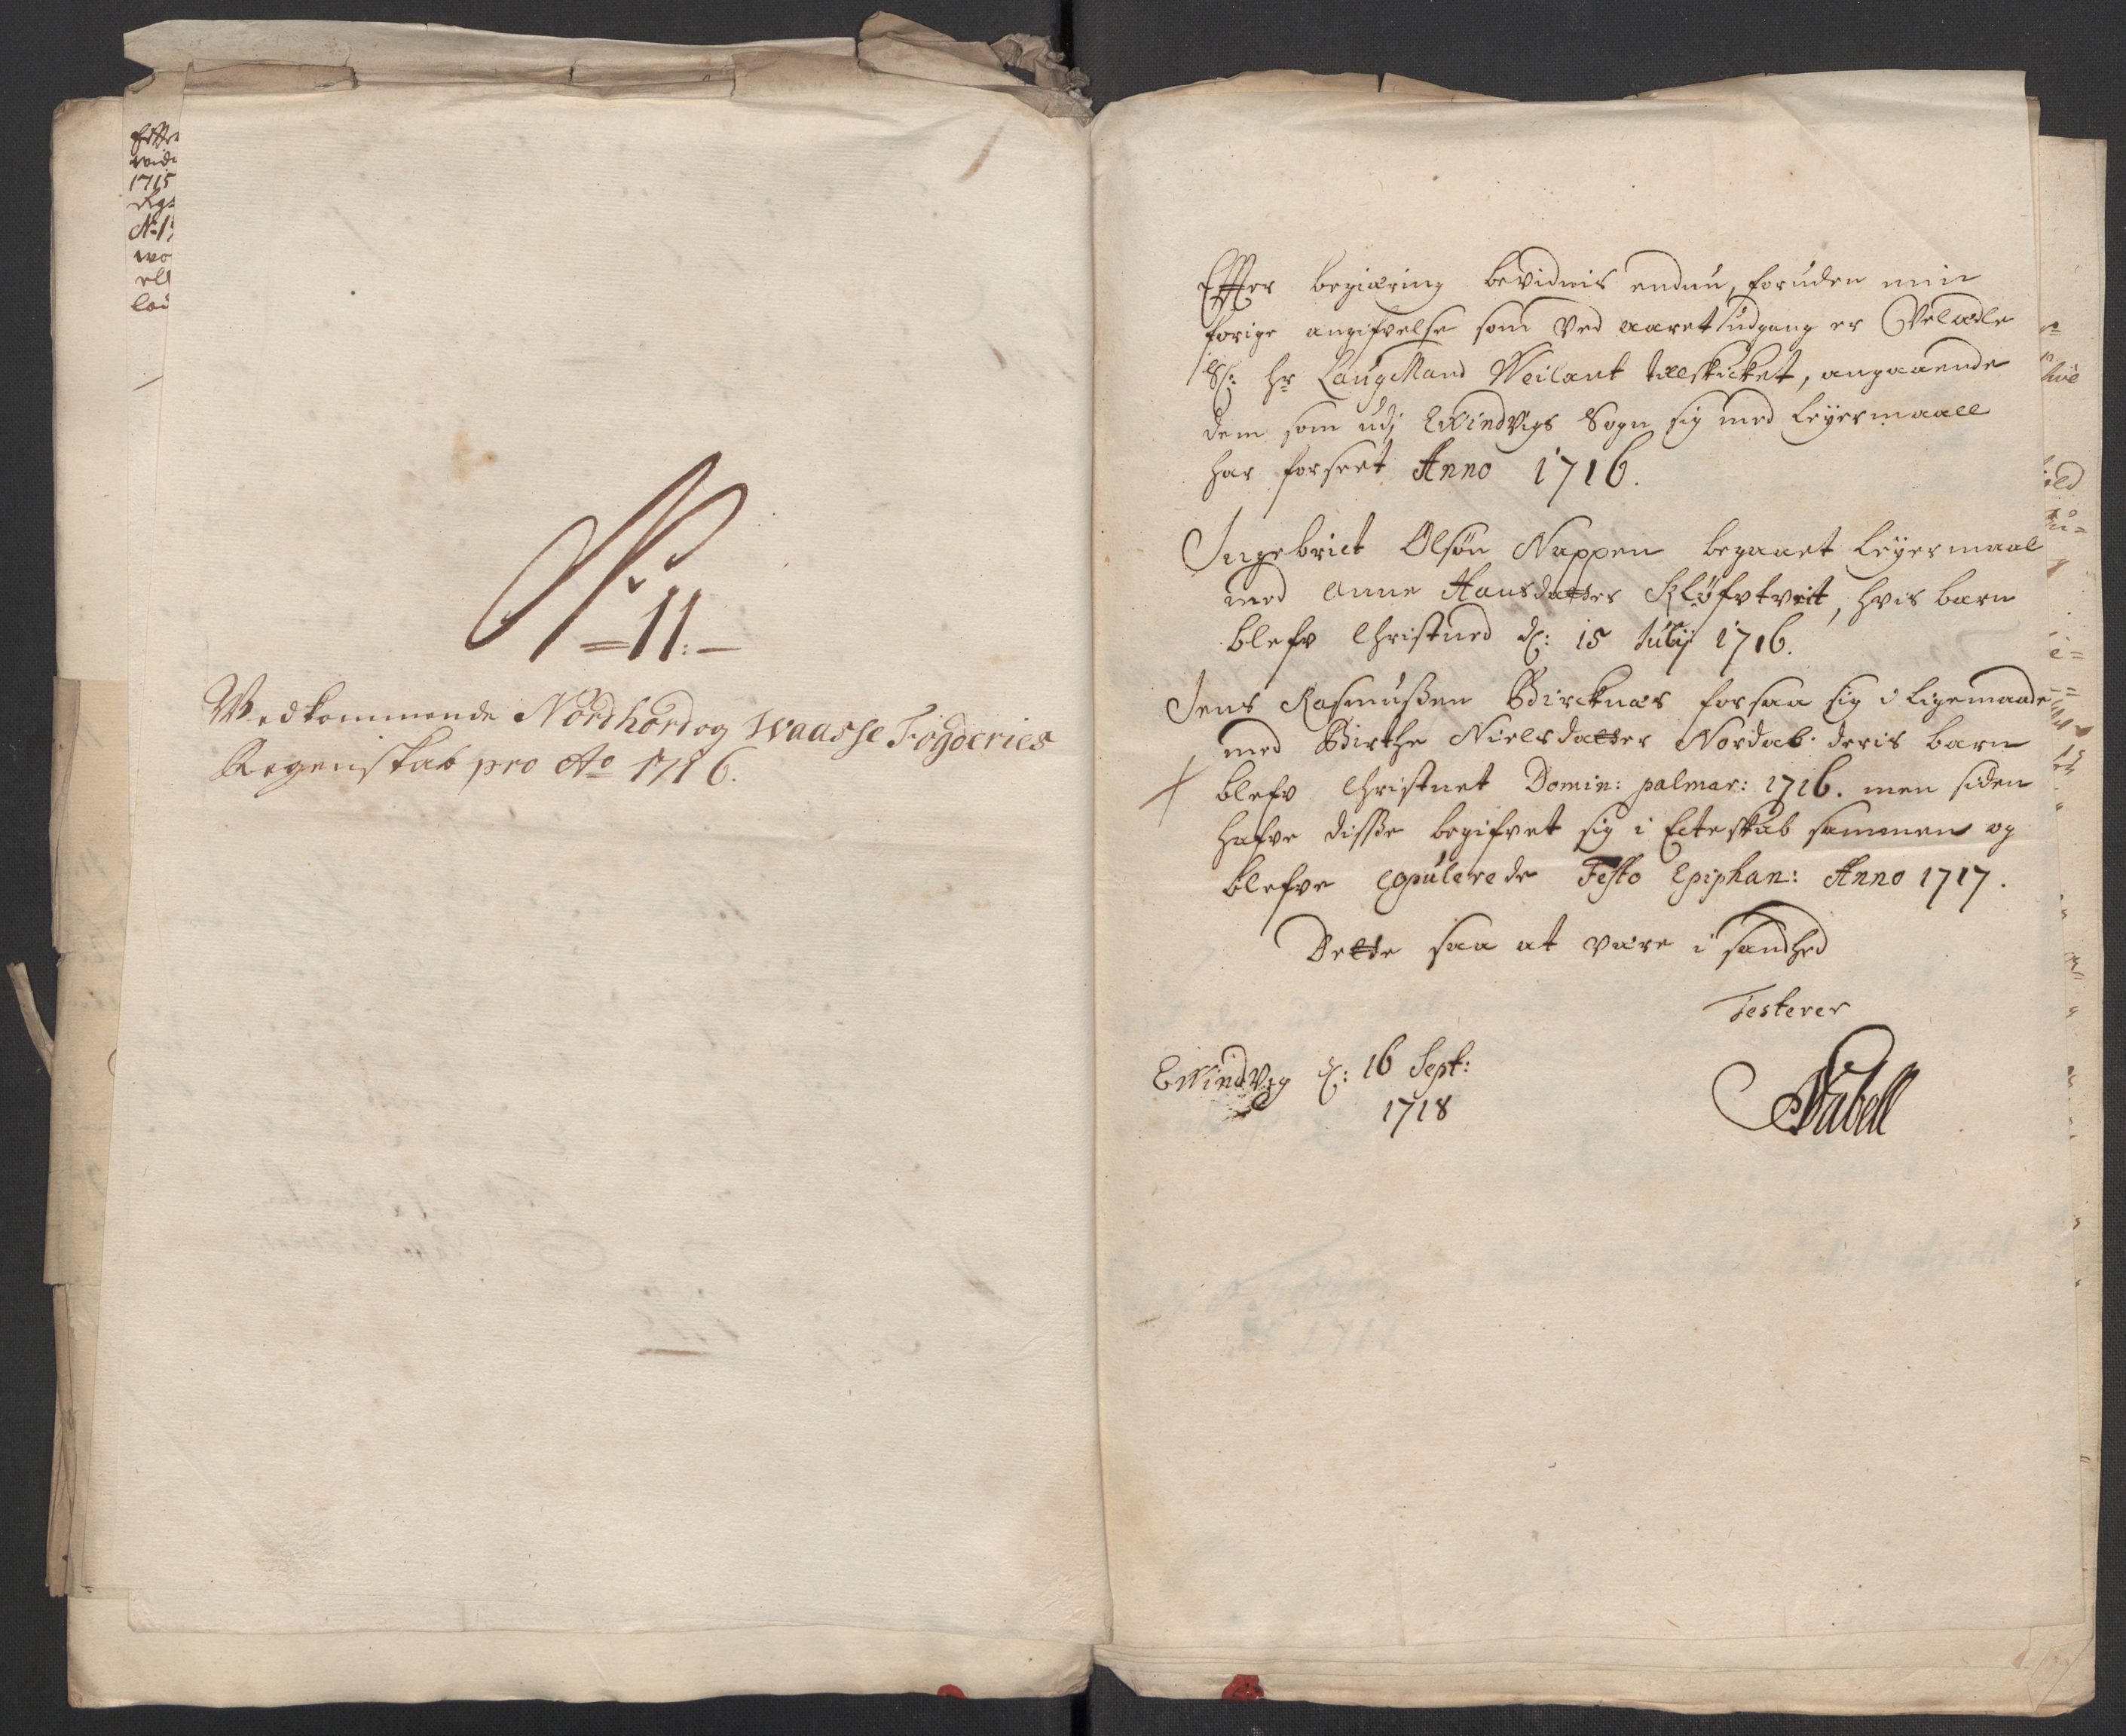 No 11.
Vedkommende Nordhord og Waasse Fogderies
Regenskab pro Ao 1716.
1715
Effter begiæring bevidnis endnu, foruden min
forige angifvelse som ved aaret udgang er Velædle
Sr: Hr LaugMand Weilant tilskicket, angaaende
dem som udj Evindvigs Sogn sig med Leyermaall
har forseet Anno 1716.
Ingebrict Olsøn Nappen begaaet Leyermaal
med Anne Hansdatter Kløfvtveit, hvis barn
blefv Christned d: 15 Julij 1716.
Jens Rasmußen Birknæs forsaa sig i ligemaade
med Birthe Nielsdatter Nordab. deris barn
blefv Christnet Domin: palmar: 1716. men siden
hafve disße begifvet sig i Ecteskab sammen og
blefve Copulerede Festo Epiphan: Anno 1717.
Dette saa at være i sandhed
Testerer
Evindvig d: 16 Sept:
1718
Nabell